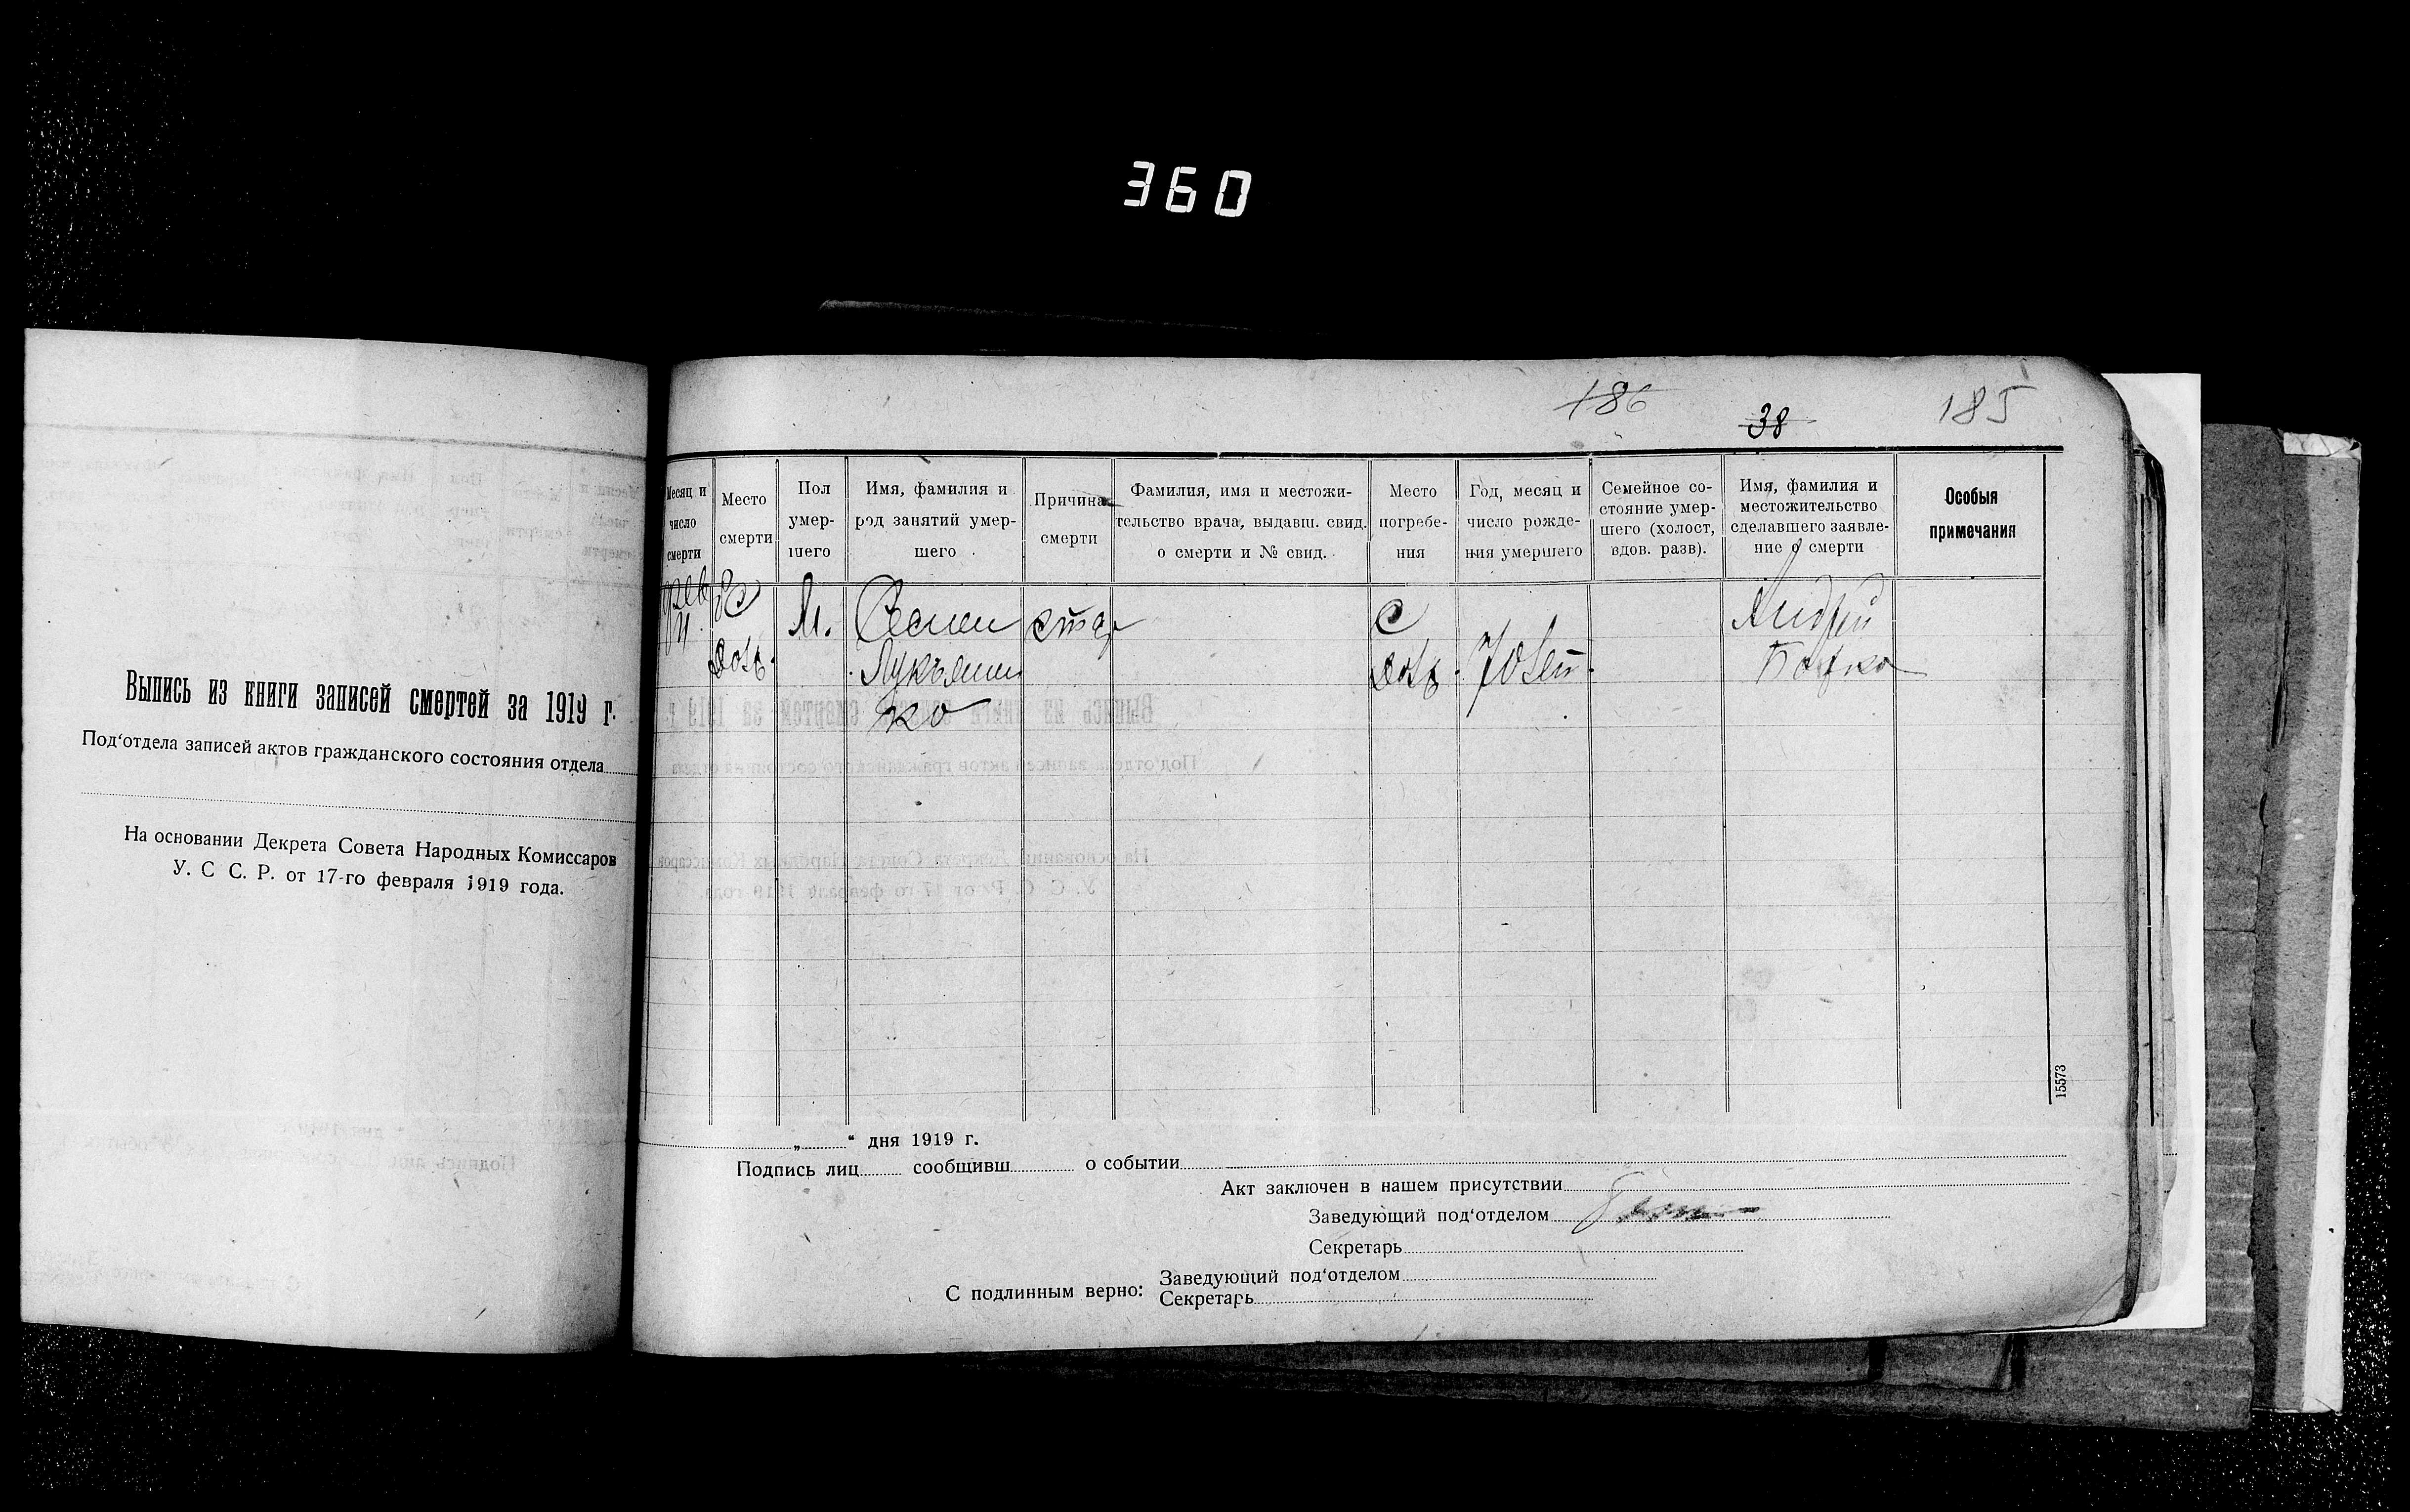 360
Выпись из книги записей смертей за 1919 г.
Под‘отдела записей актов гражданского состояния отдела
На основании Декрета Совета Народных Комиссаров
У. С С. Р. от 17-го февраля 1919 года.
186
38
185
Месяц и число смерти
Место смерти
Пол умер-
шего
Имя, фамилия и
род занятий умер-
шего
Причина
смерти
Фамилия, имя и местожи-
тельство врача, выдавш. свид.
о смерти и № свид.
Место
погребе-
ния
Год, месяц и
число рожде-
ния умершего
Семейное со-
стояние умер-
шего (холост,
вдов. разв).
Имя, фамилия и
местожительство
сделавшего заявле-
ние о смерти
Особыя
примечания
М.
Семен
Лукъянен
ко
стар
с
70 лет.
Андрей
15573
„ “ дня 1919 г.
Подпись лиц сообщивш о событии
Акт заключен в нашем присутствии
Заведующий под‘отделом
Секретарь
С подлинным верно:
Заведующий под‘отделом
Секретарь